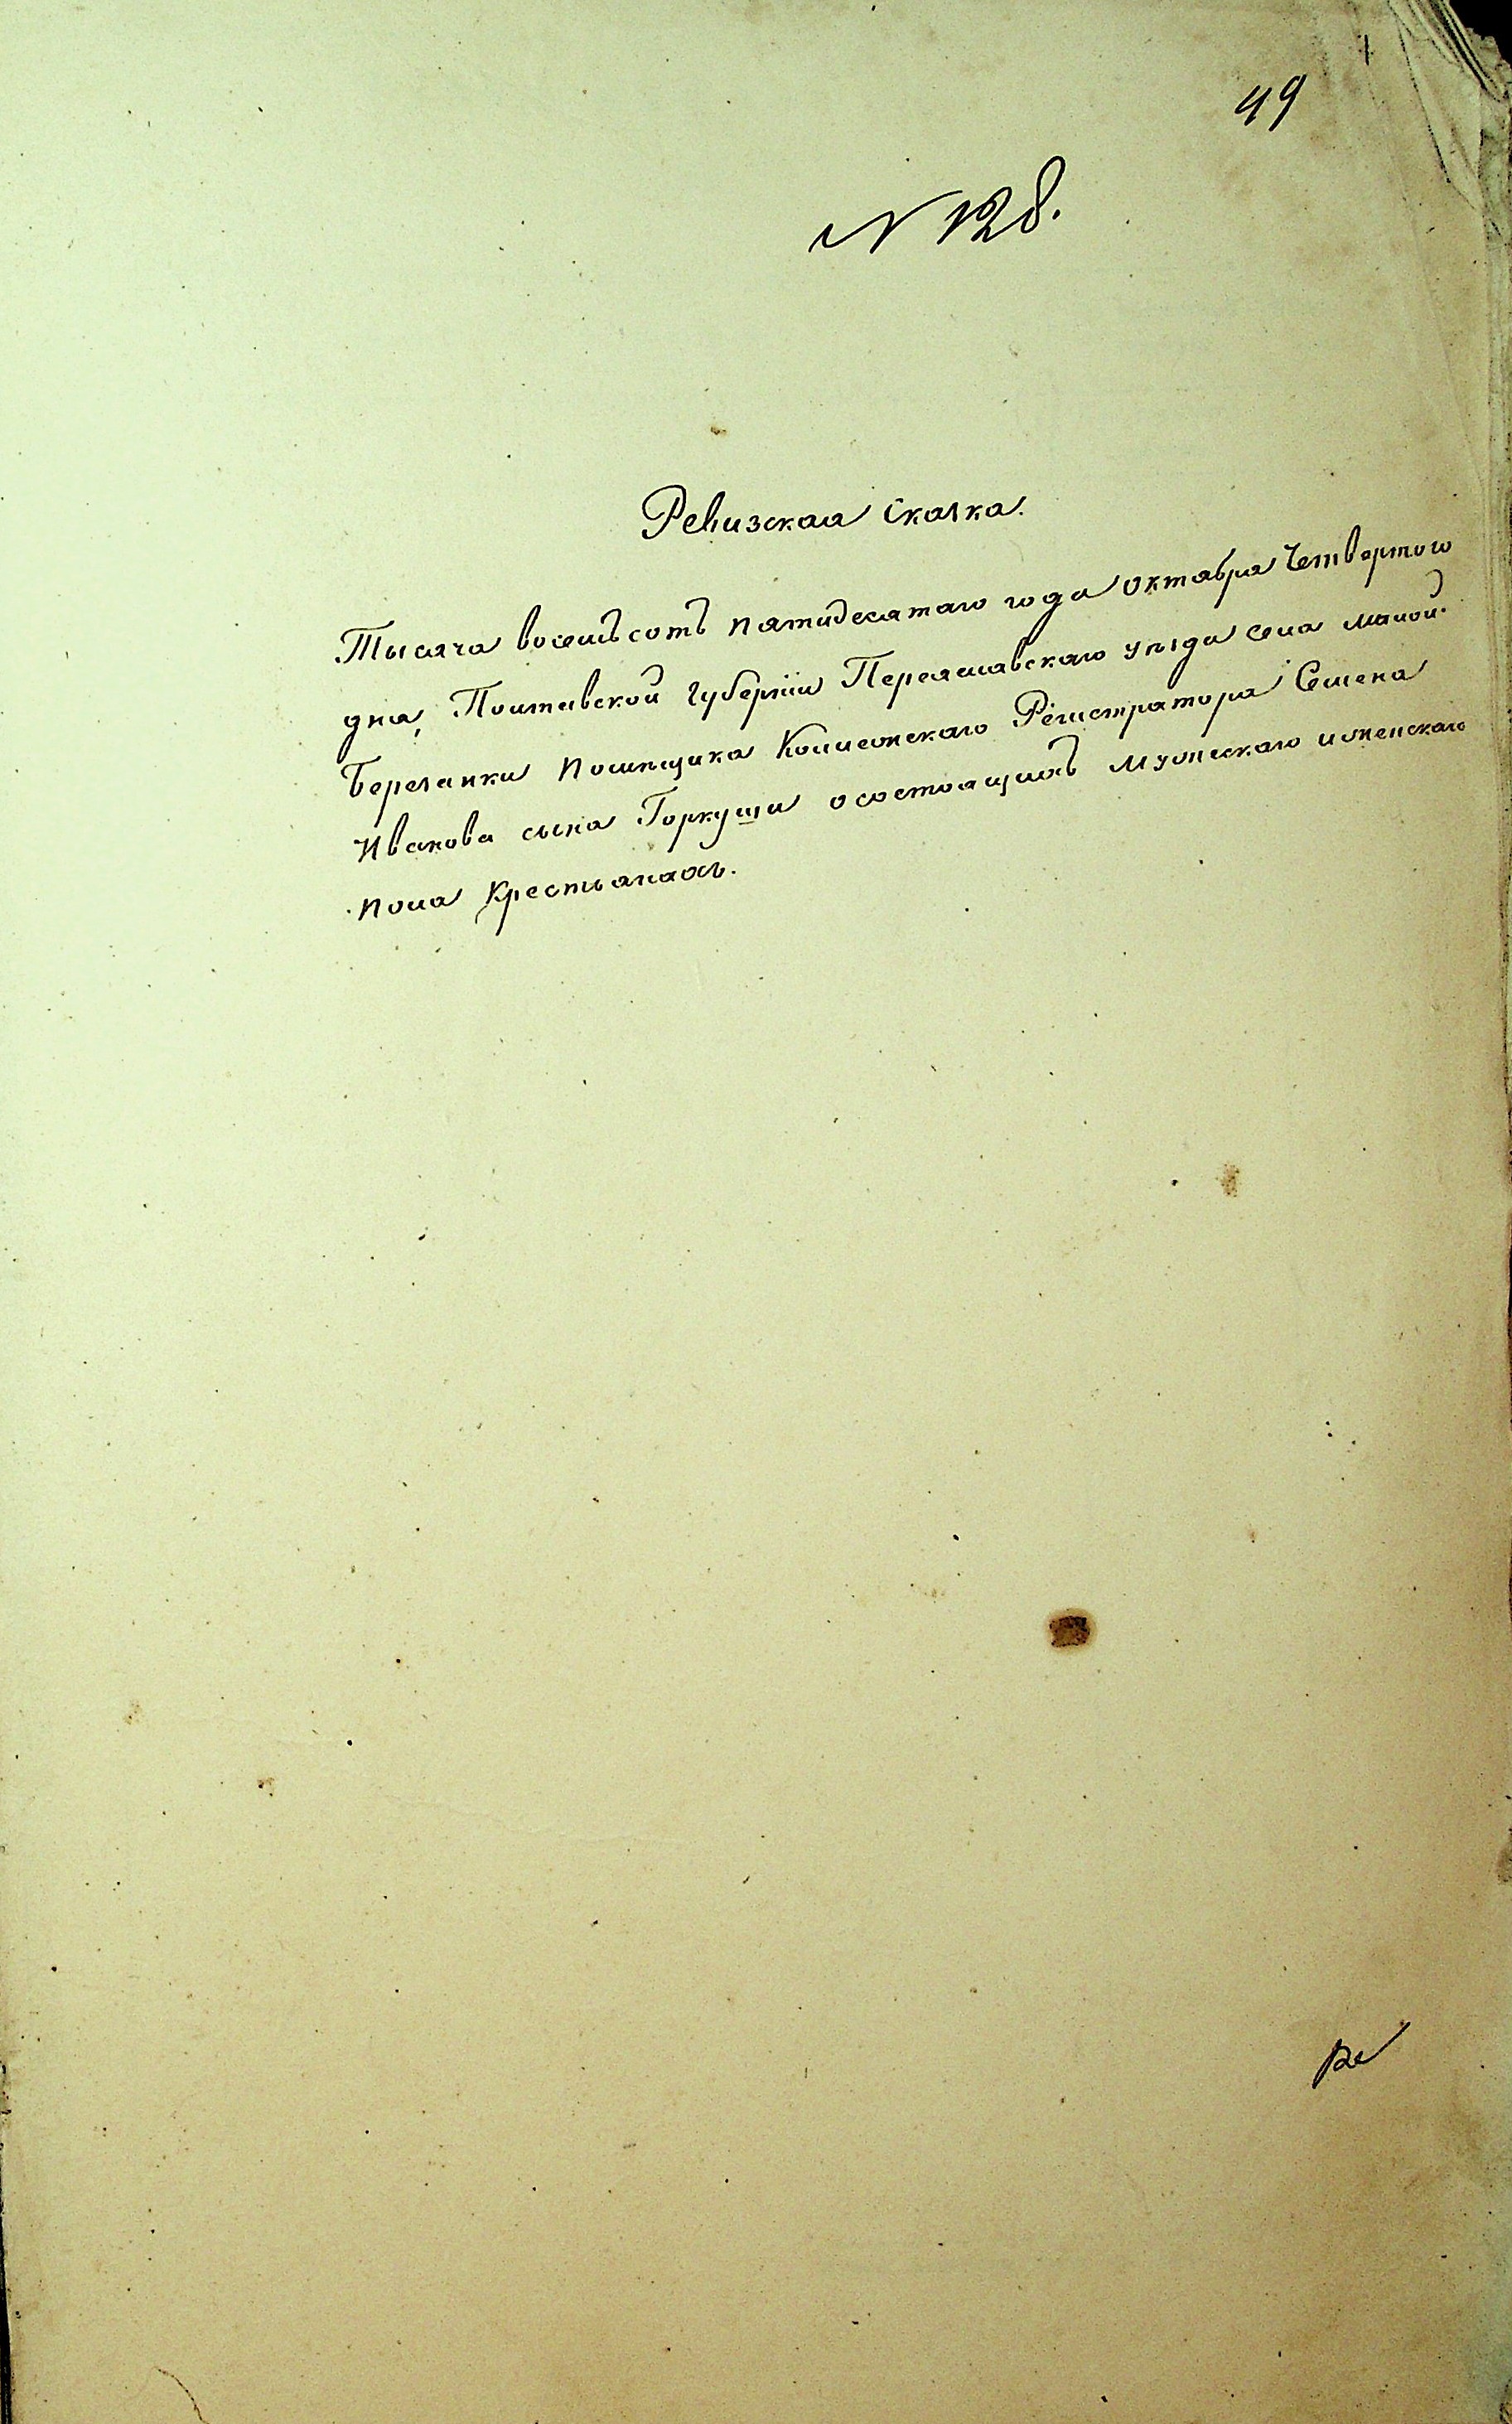 49
N 128.
Ревизская Сказка.
Тысяча восемьсотъ пятидесятаго года Октября Четвертого
дня, Полтавской Губерніи Переяславскаго уѣзда села малой
Березанки помѣщика Коллежскаго Регистратора Семена
Иванова сына Горкуши о состоящихъ мужескаго и женскаго
пола Крестьянахъ.